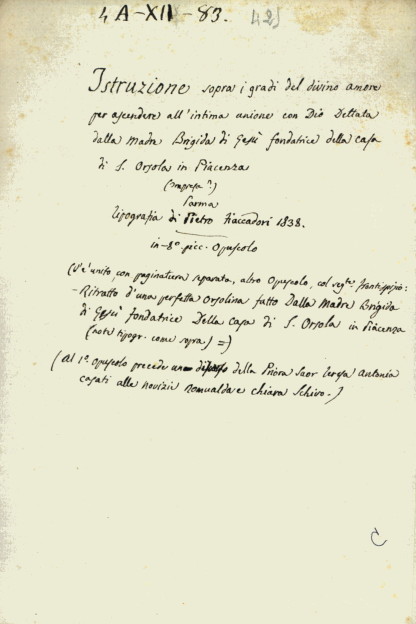 4 A-XII-83. 425
Istruzione sopra i gradi del divino amore
per ascendere all'intima unione con Dio Dettata
dalla Madre Brigida di Gesù fondatrice della casa
di S. Orsola in Piacenza
(Impresa?)
Parma
Tipografia di Pietro Fiaccadori 1838.
in-8º picc. Opuscolo
(V'è unito, con paginatura separata, altro Opuscolo, col segte. frontispizio:
- Ritratto d'una perfetta Orsolina fatto Dalla Madre Brigida
di Gesù fondatrice Della Casa di S. Orsola in Piacenza
(note tipogr. come sopra) =)
(Al 1º opuscolo precede un della Priora Suor Teresa Antonia
Casati alle novizie Romualda e Chiara Schivo.)
C